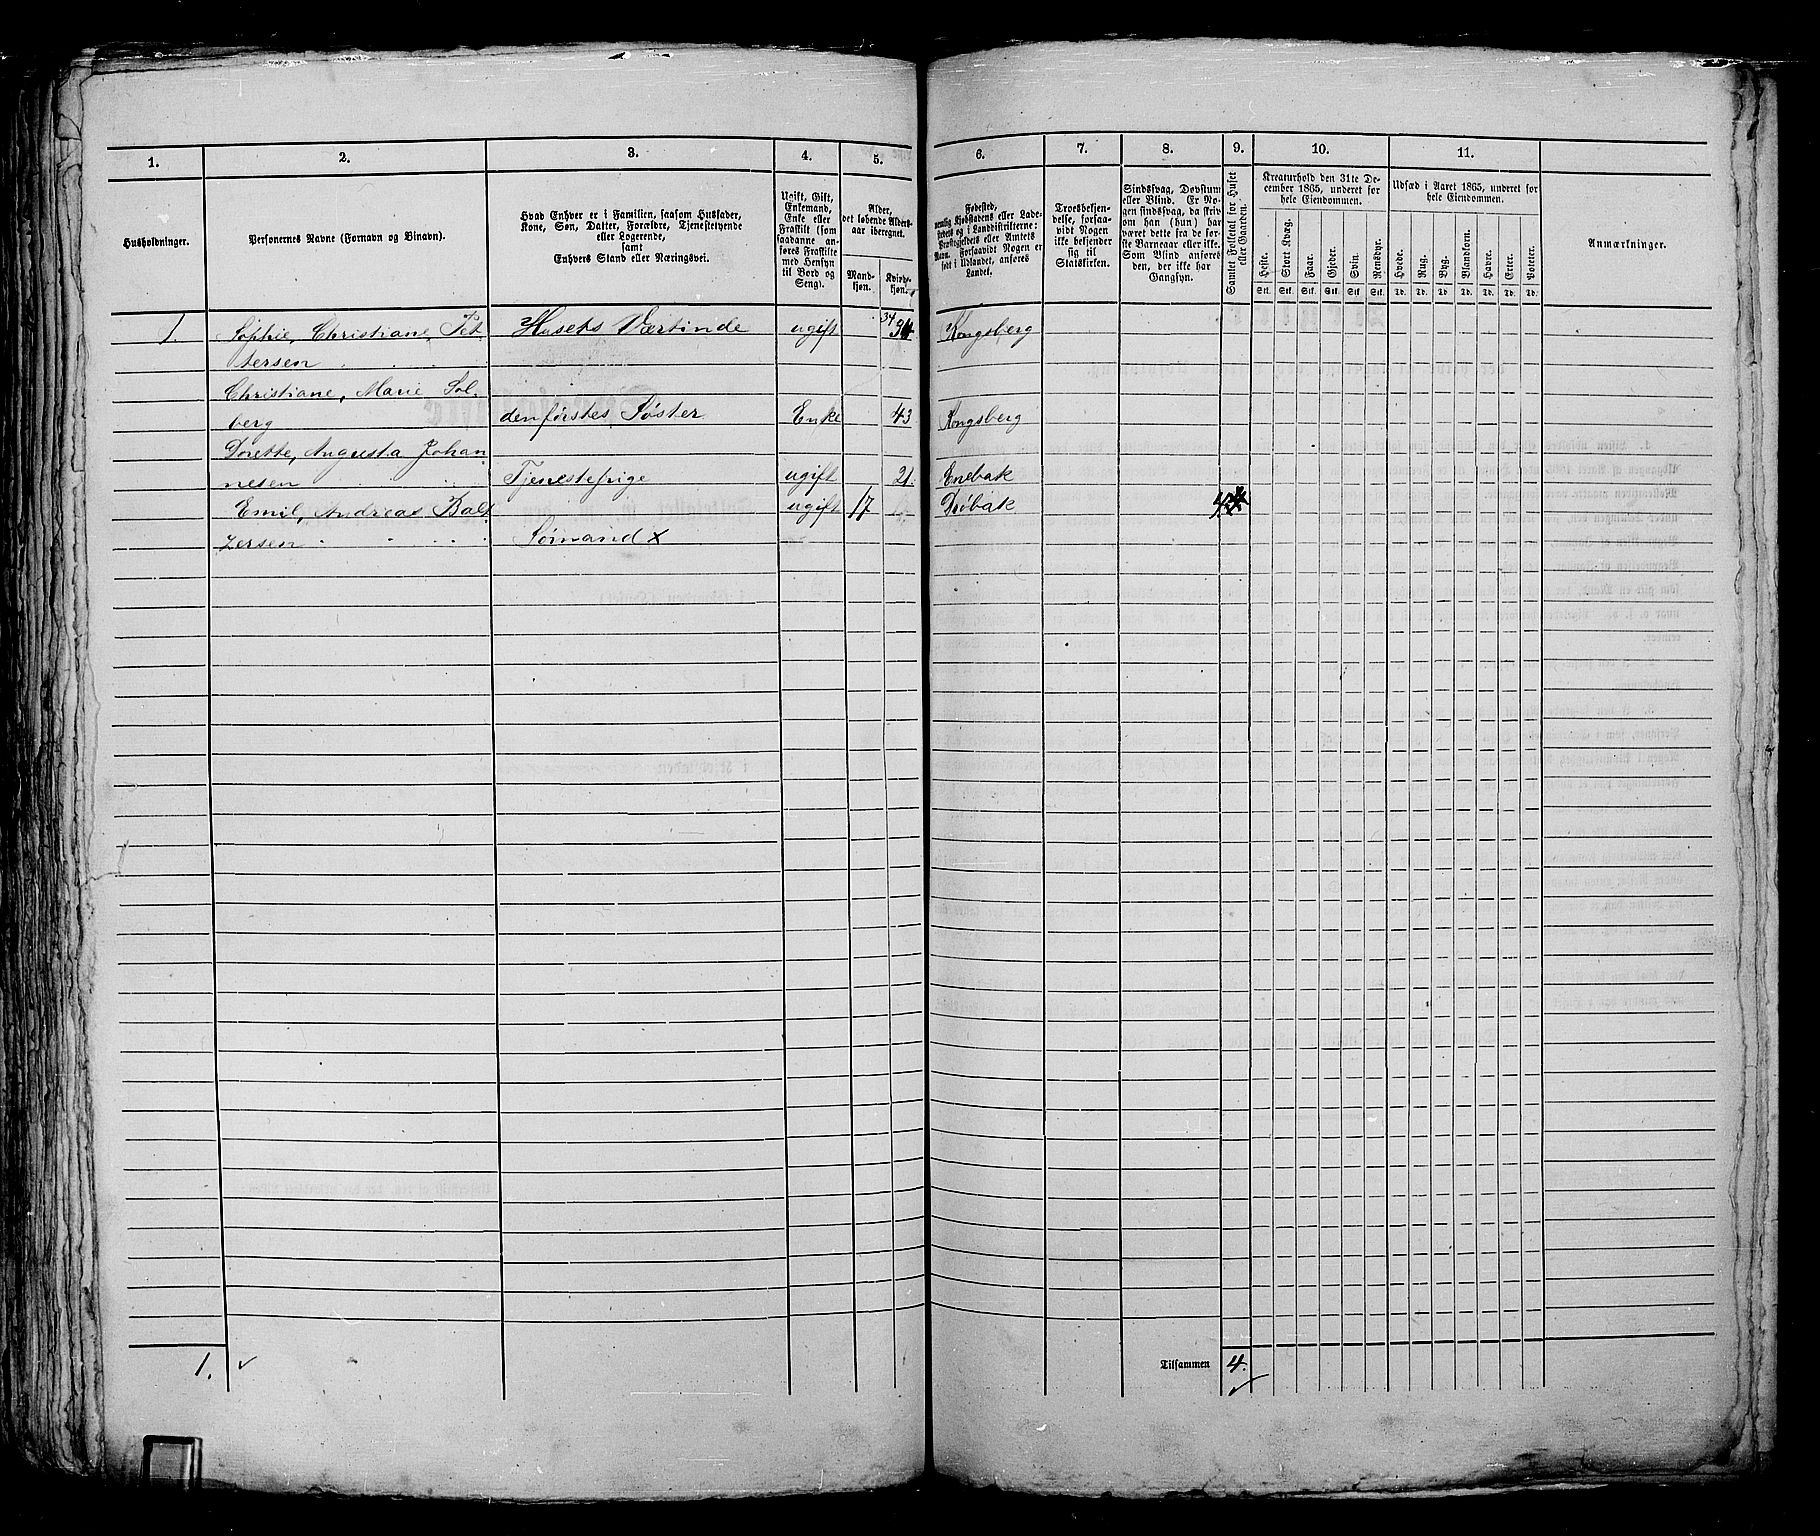 1.
2.
3.
4.
5.
6.
7.
8.
9.
10.
11.
Husholdninger.
Personernes Navne (Fornavn og Binavn).
Hvad Enhver er i Familien, saasom Husfader,
Kone, Søn, Datter, Forældre, Tjenestetyende
eller Logerende,
samt
Enhvers Stand eller Næringsvei.
Ugift, Gift,
Enkemand,
Enke eller
Fraskilt (som
saadanne an-
føres Fraskilte
med Hensyn
til Bord og
Seng).
Alder,
det løbende Alders-
aar iberegnet.
Mand-
kjøn.
Kvinde-
kjøn.
Fødested,
nemlig Kjøbstadens eller Lade-
stedets og i Landdistrikterne:
Præstegjeldets eller Amtets
Navn. Forsaavidt Nogen er
født i Udlandet, anføres
Landet.
Troesbekjen-
delse, forsaa-
vidt Nogen
ikke bekjender
sig til
Statskirken.
Sindssvag, Døvstum
eller Blind. Er No-
gen sindssvag, da skriv
om han (hun) har
været dette fra de før-
ste Barneaar eller ikke.
Som Blind anføres
den, der ikke har
Gangsyn.
Samlet Folketal for Huset
eller Gaarden.
Kreaturhold den 31te De-
cember 1865, underet for
hele Eiendommen.
Heste.
Stort Kvæg.
Faar.
Gjeder.
Svin.
Rensdyr.
Stk. Stk. Stk. Stk. Stk. Stk.
Udsæd i Aaret 1865, underet for
hele Eiendommen.
Hvede.
Rug.
Byg.
Blandkorn.
Havre.
Erter.
Poteter.
Td. Td. Td. Td. Td. Td. Td.
Anmærkninger.
1. Sophie, Christiane, Pet- Husets Værtinde ugift 34 Kongsberg
tersen
Christiane, Marie Sol-
berg den førstes Søster Enke 43 Kongsberg
Dorette, Augusta Johan-
nesen Tjenestepige ugift 21 Enebak
Emil, Andreas Balt ugift 17 Drøbak 4
zersen Sømand x
1. ✓
Tilsammen 4.